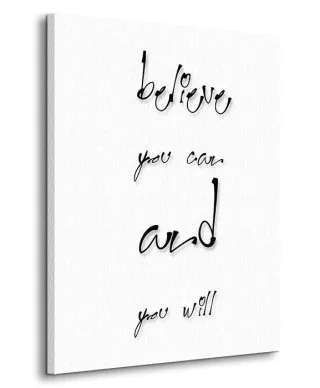 believe
you can
and
you will